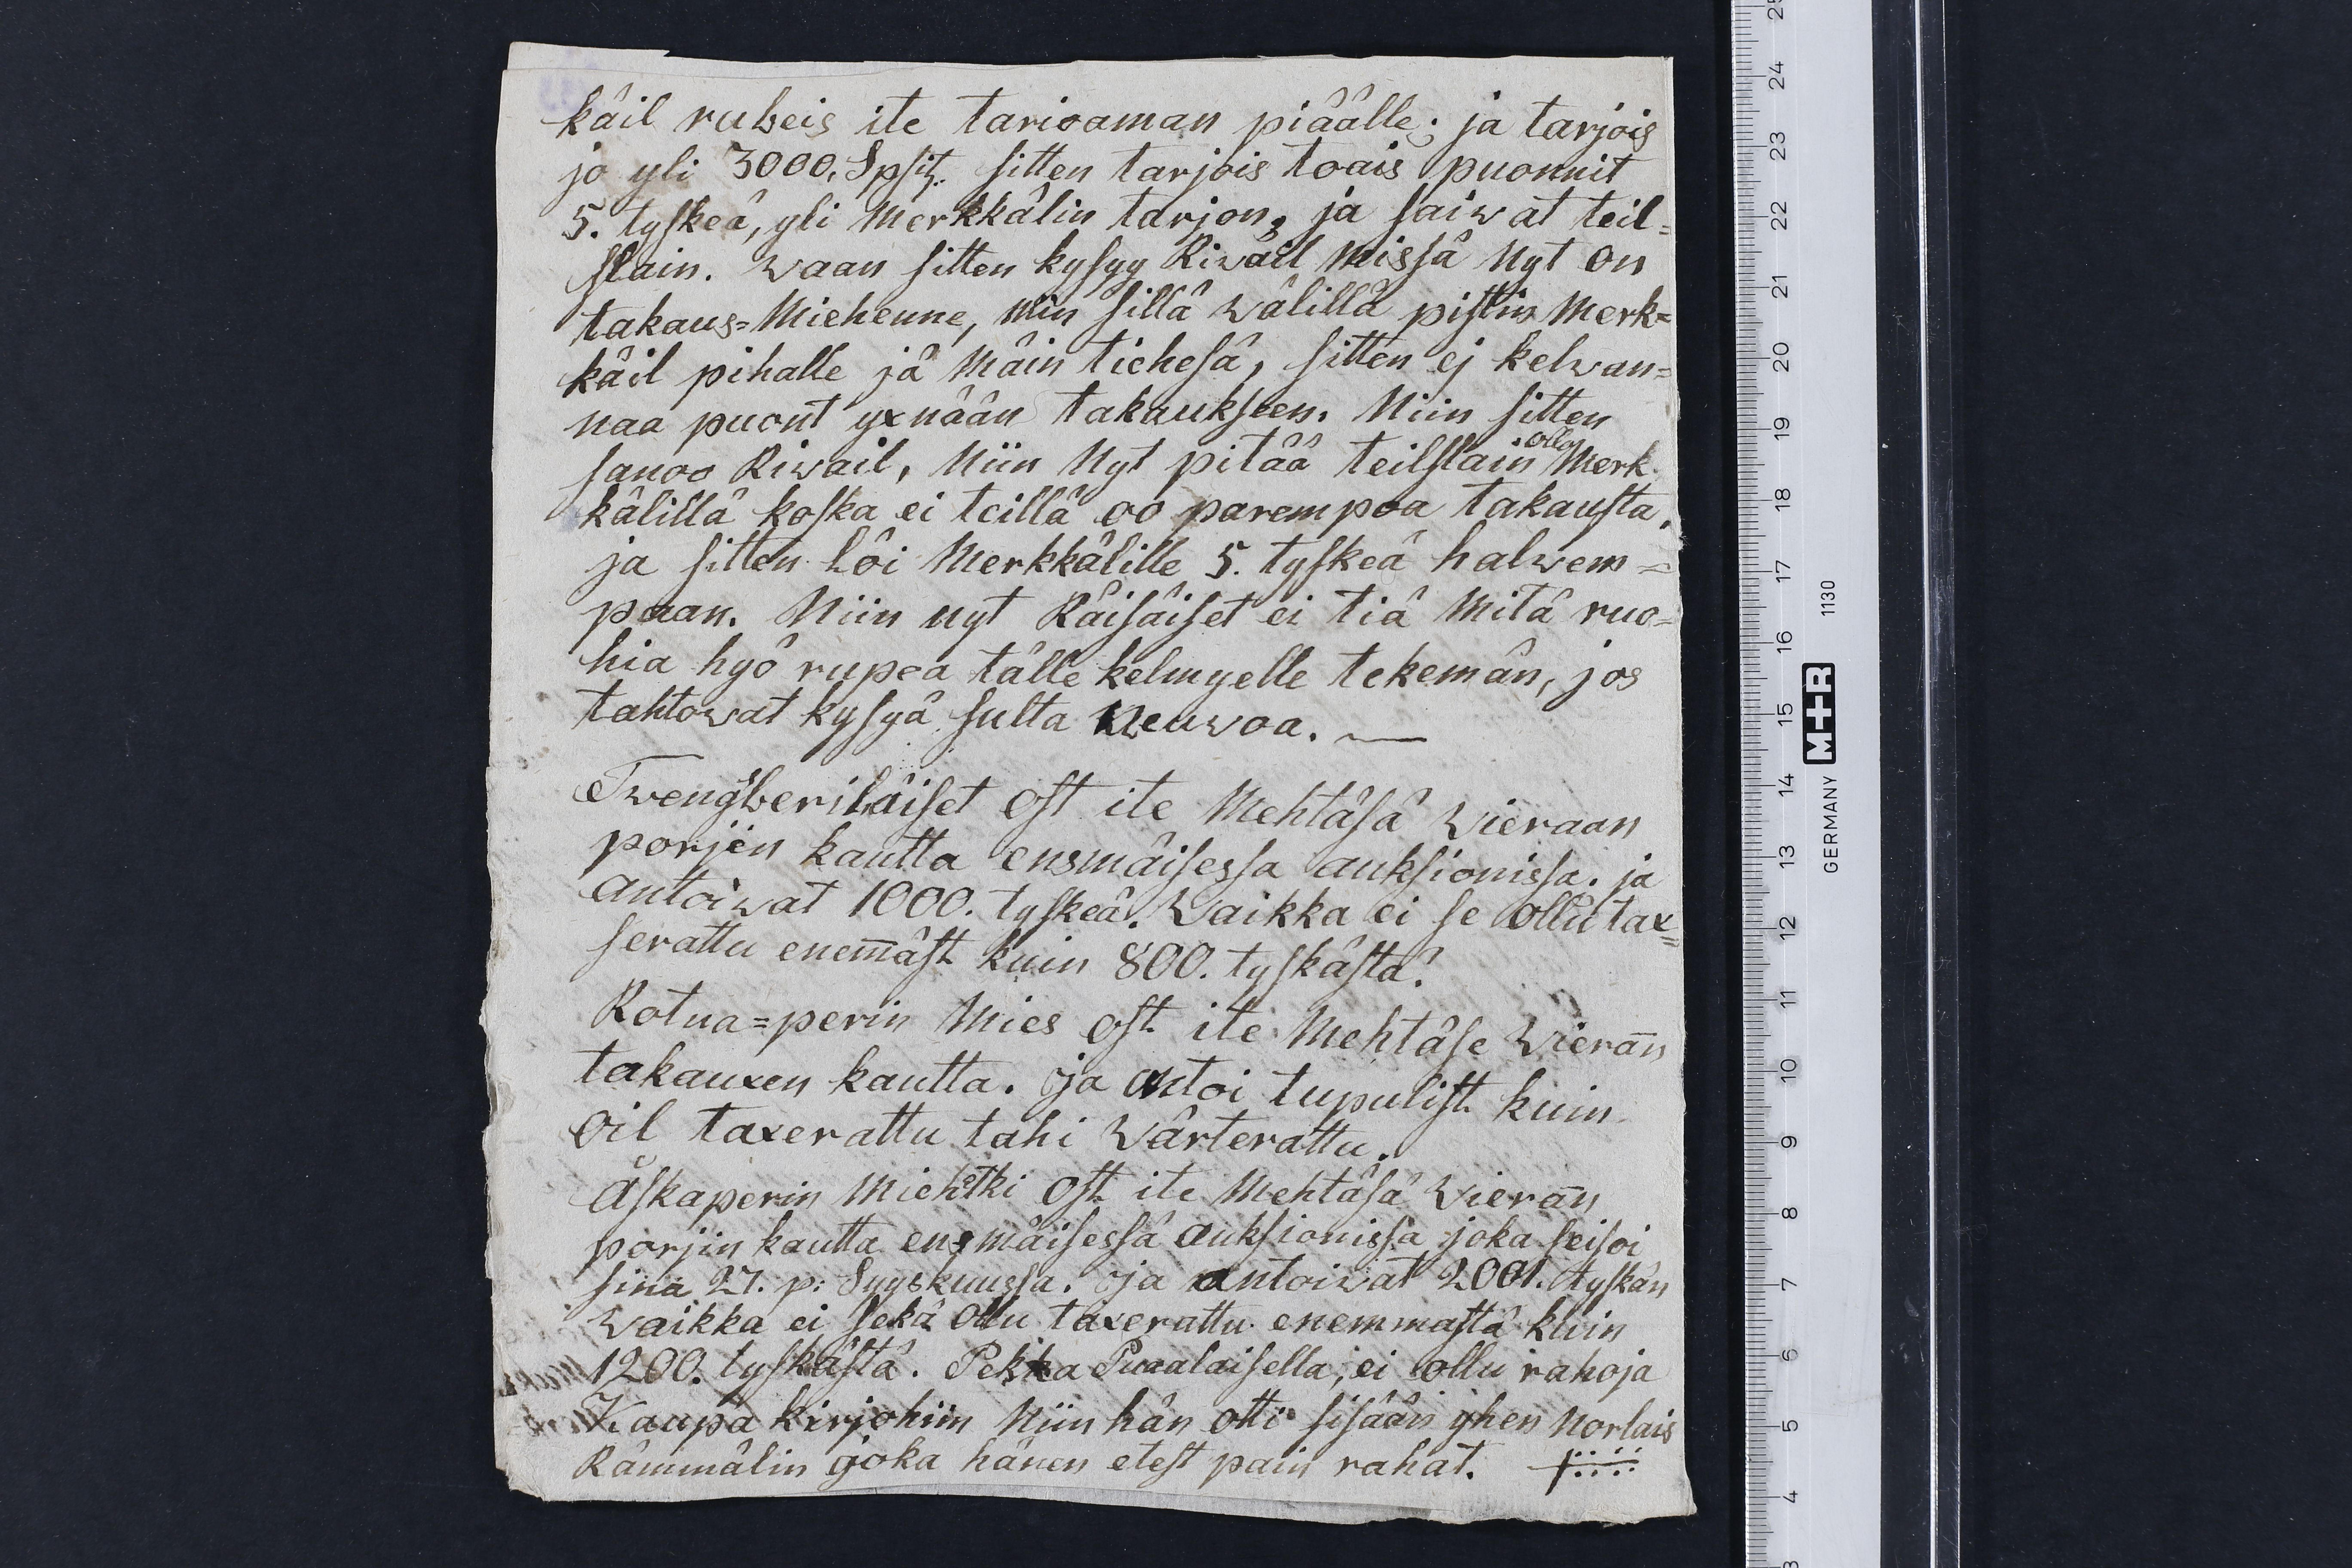 käil rubeis ite tarioaman piäälle; ja tarjois
jo yli 3000. Spsiz. sitten tarjois toais puonnit
5. tyskeä, yli Merkkälin tarjon, ja saiwat teil=
stain. waan sitten kysyy Riwail Missä Nyt on
takaus=Miehenne, Min sillä wälillä pistin Merk=
käil pihalle jä Mäin tiehesä, sitten ej kelwan=
naa puont yxnään takaukseen. Niin sitten
sanoo Riwail, Niin Nyt pitää teilstain olla Merk
kälillä koska ei teillä oo parempoa takausta.
ja sitten löi Merkkälille 5. tyskeä halwem=
paan. Niin nyt Räisäiset ei tiä Mitä ruo=
hia hyö rupea tälle kelmyelle tekemän, jos
tahtowat kysyä sulta Neuwoa. —
Twengsberiläiset ost ite Mehtäsä Wieraan
porjën kautta ensmäisessa auksionissa. ja
antoiwat 1000. tyskeä. Waikka ei se ollu tax=
serattu enem̄äst kuin 800. tyskästä.
Rotna=perin Mies ost ite Mehtäse Wieran̄
takauxen kautta. ja antoi tupulist kuin
oil taxerattu tahi Wärterattu.
Åskaperin Miehetki ost ite Mehtäsä Wieran̄
porjin kautta ensmäisessä auksionissa joka seisoi
sinä 27. p: Syyskuussa. ja antoiwat 2001. tyskän
Waikka ei sekä ollu taxerattu enemmästä kuin
1200. tyskästä. Pekka Puaalaisella, ei ollu rahoja
Kaupa kirjohiin Niin hän otti sisään yhen Norlais
Rämmälin joka hänen etest pain rahat.